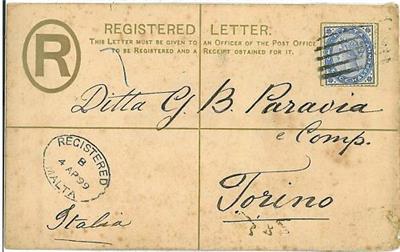 REGISTERED LETTER.
THIS LETTER MUST BE GIVEN TO AN OFFICER OF THE POST OFFICE
TO BE REGISTERED AND A RECEIPT OBTAINED FOR IT.
R
Ditta G. B. Paravia
e Comp.
REGISTERED
B
4 AP 99
MALTA
Torino
Italia